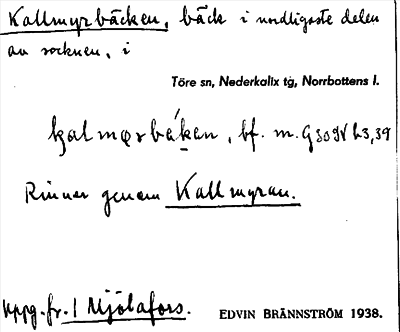 Kallmyrbäcken, bäck i nordligaste delen
av socknen, i
Töre sn, Nederkalix tg, Norrbottens l.
bf. m.
Rinner genom Kallmyran.
uppg.fr. Mjölafors.
EDVIN BRÄNNSTRÖM 1938.